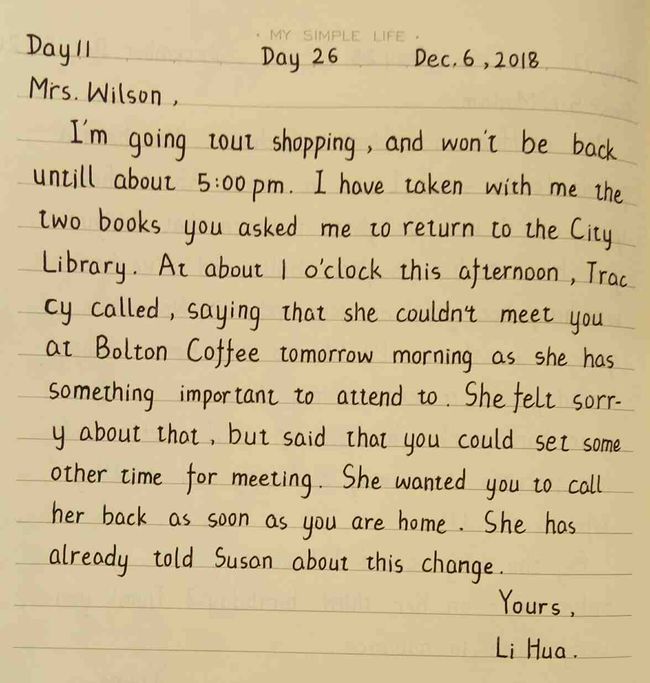 · MY SIMPLE LIFE ·
Day11 Day 26 Dec. 6, 2018
Mrs. Wilson,
I'm going tout shopping, and won't be back
untill about 5:00 pm. I have taken with me the
two books you asked me to return to the City
Library. At about 1 o'clock this afternoon, Trac
cy called, saying that she couldn't meet you
at Bolton Coffee tomorrow morning as she has
something important to attend to. She felt sorr-
y about that, but said that you could set some
other time for meeting. She wanted you to call
her back as soon as you are home. She has
already told Susan about this change.
Yours,
Li Hua.